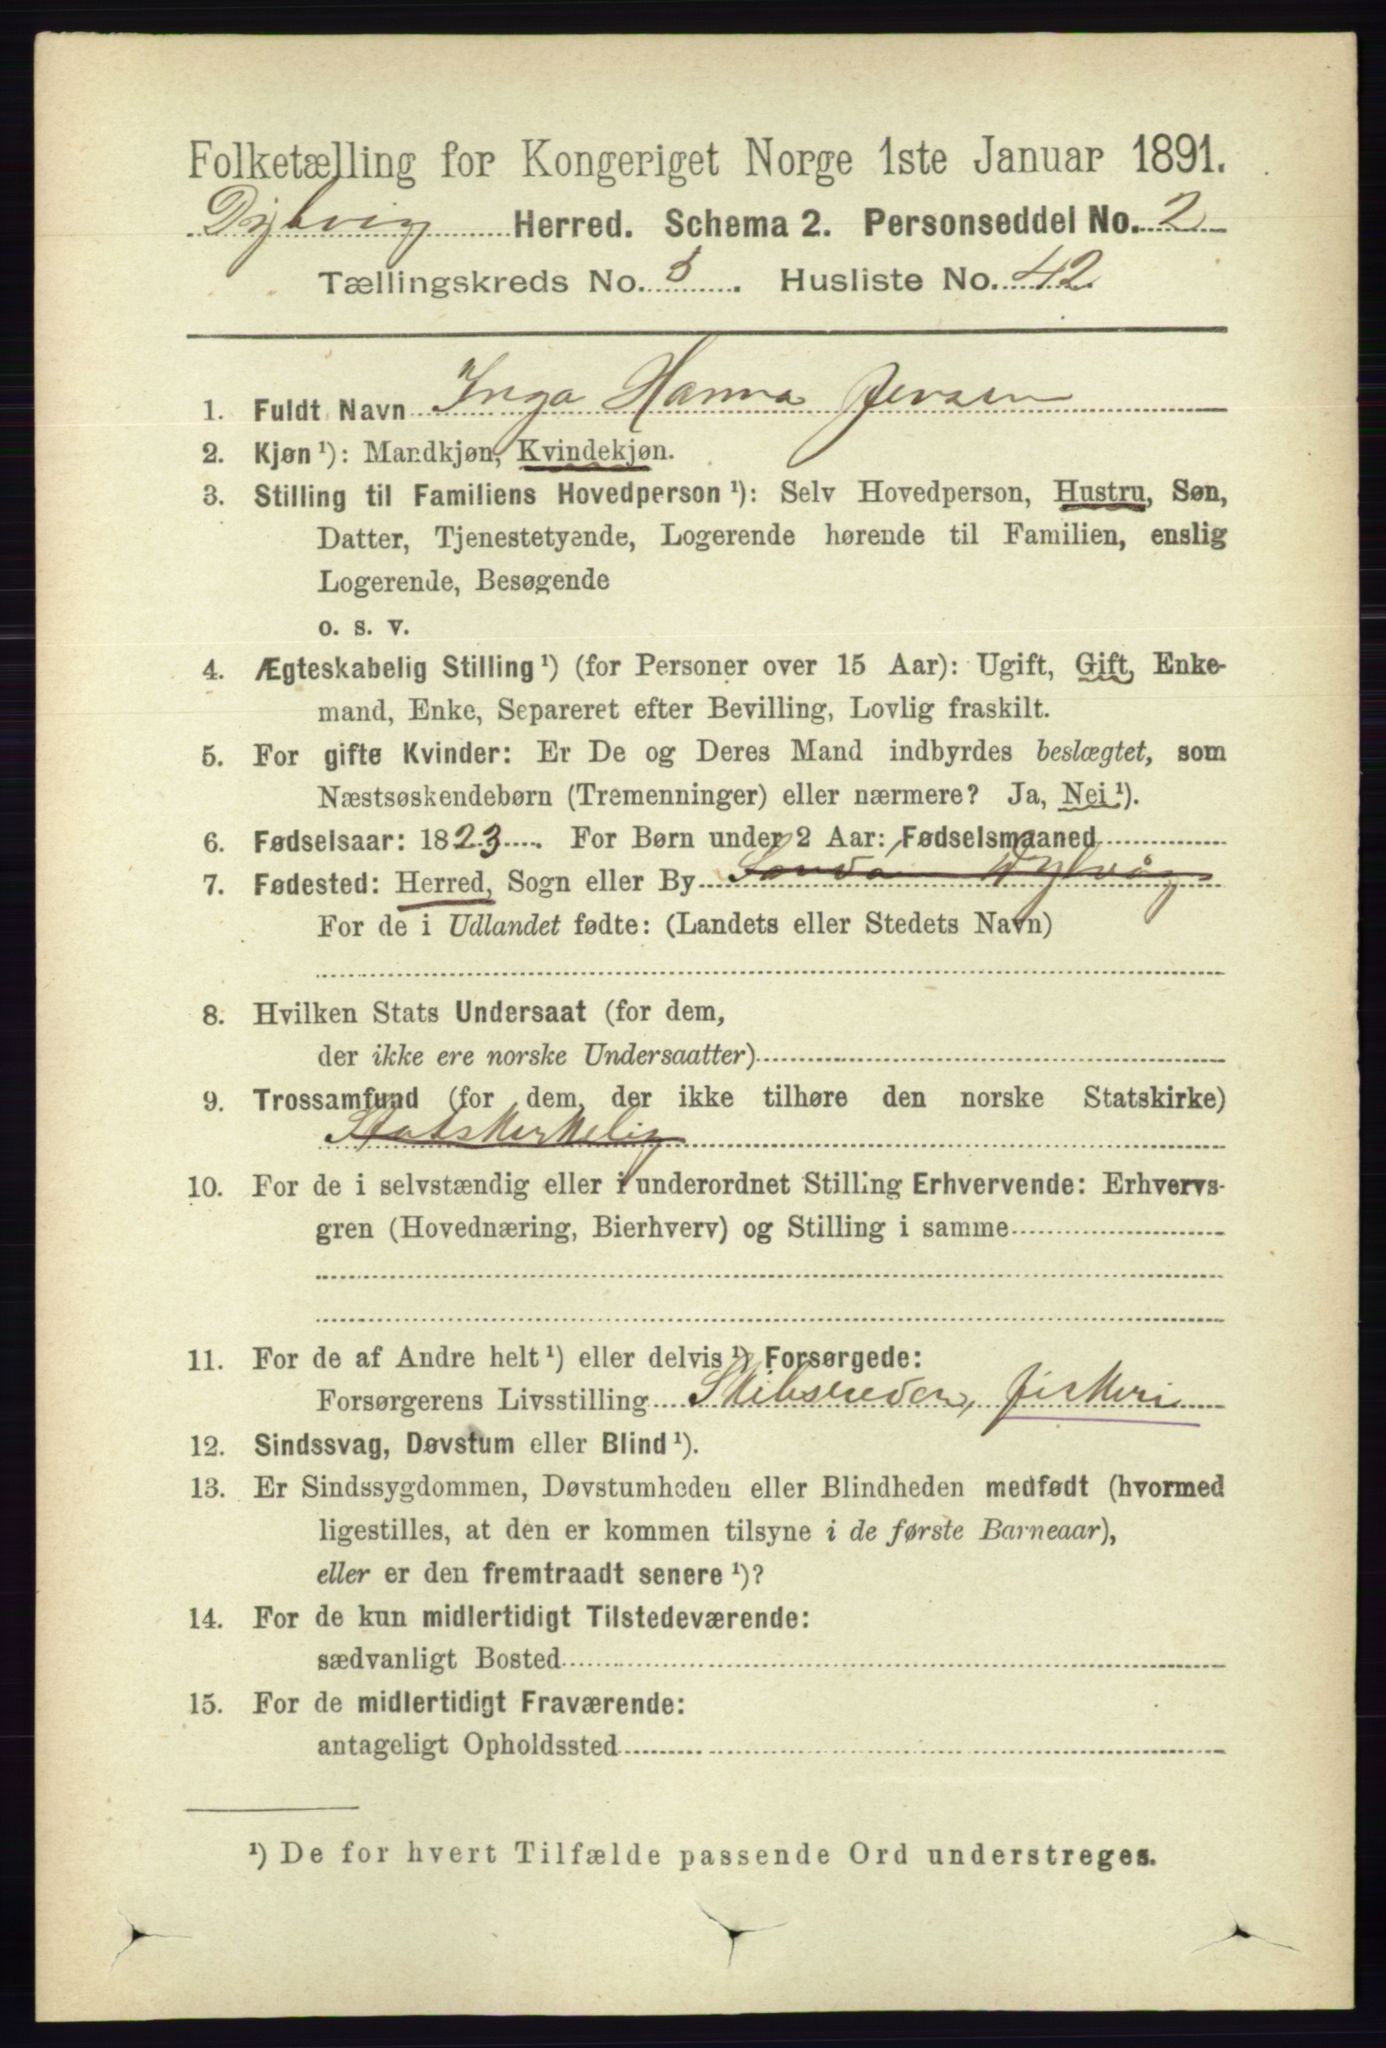 Folketælling for Kongeriget Norge 1ste Januar 1891.
Dybvig Herred. Schema 2. Personseddel No. 2
Tællingskreds No. 5. Husliste No. 42
1. Fuldt Navn Inga Hanna Jensen
2. Kjøn ¹): Mandkjøn, Kvindekjøn.
3. Stilling til Familiens Hovedperson ¹): Selv Hovedperson, Hustru, Søn,
Datter, Tjenestetyende, Logerende hørende til Familien, enslig
Logerende, Besøgende
o. s. v.
4. Ægteskabelig Stilling ¹) (for Personer over 15 Aar): Ugift, Gift, Enke-
mand, Enke, Separeret efter Bevilling, Lovlig fraskilt.
5. For gifte Kvinder: Er De og Deres Mand indbyrdes beslægtet, som
Næstsøskendebørn (Tremenninger) eller nærmere? Ja, Nei ¹).
6. Fødselsaar: 1823. For Børn under 2 Aar: Fødselsmaaned
7. Fødested: Herred, Sogn eller By
For de i Udlandet fødte: (Landets eller Stedets Navn)
8. Hvilken Stats Undersaat (for dem,
der ikke ere norske Undersaatter)
9. Trossamfund (for dem, der ikke tilhøre den norske Statskirke)
Statskirkelig
10. For de i selvstændig eller i underordnet Stilling Erhvervende: Erhvervs-
gren (Hovednæring, Bierhverv) og Stilling i samme
11. For de af Andre helt ¹) eller delvis ¹) Forsørgede:
Forsørgerens Livsstilling Skibsreder, fiskeri
12. Sindssvag, Døvstum eller Blind ¹).
13. Er Sindssygdommen, Døvstumheden eller Blindheden medfødt (hvormed
ligestilles, at den er kommen tilsyne i de første Barneaar),
eller er den fremtraadt senere ¹)?
14. For de kun midlertidigt Tilstedeværende:
sædvanligt Bosted
15. For de midlertidigt Fraværende:
antageligt Opholdssted
¹) De for hvert Tilfælde passende Ord understreges.